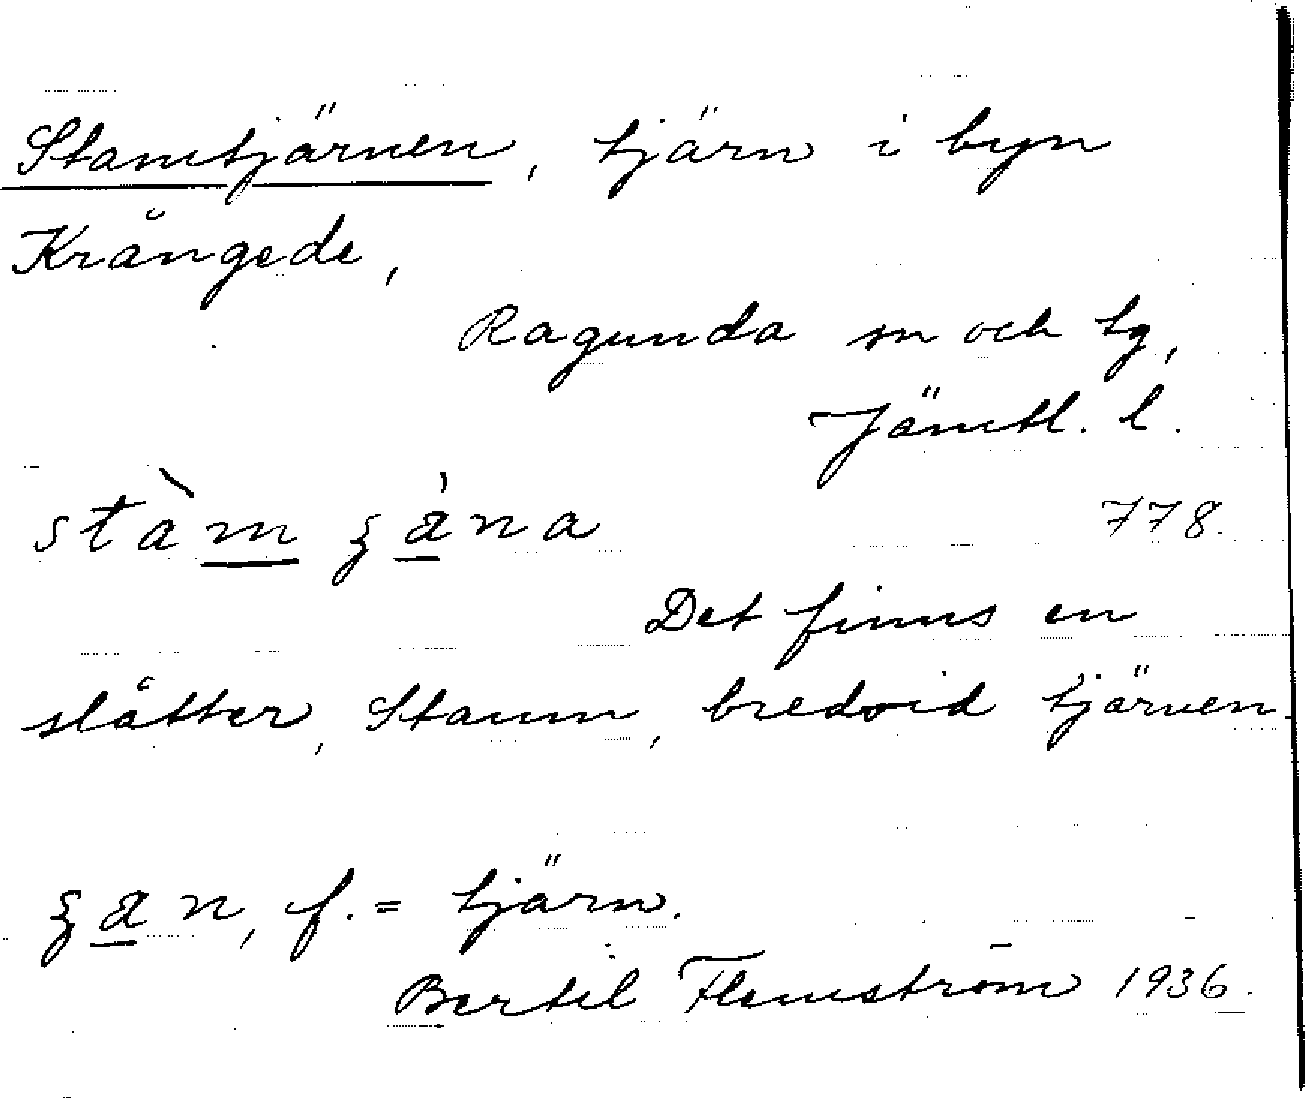 Stamtjärnen, tjärn i byn
Krångede,
Ragunda sn och tg,
Jämtl. l.
stàm ʒàna 778.
Det finns en
slåtter, Stamm, bredvid tjärnen.
ʒan, f. = tjärn.
Bertil Flemström 1936.